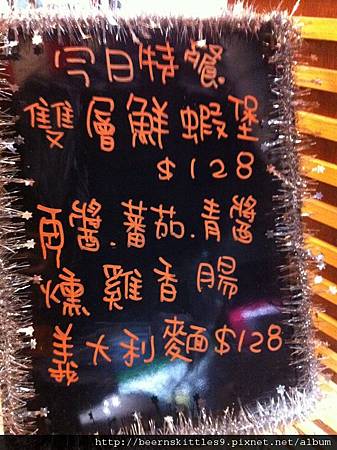 今日特餐
雙層鮮蝦堡
$128
再醬.蕃茄.青醬
燻雞香腸
義大利麵$128
http://beernskittles9.pixnet.net/album